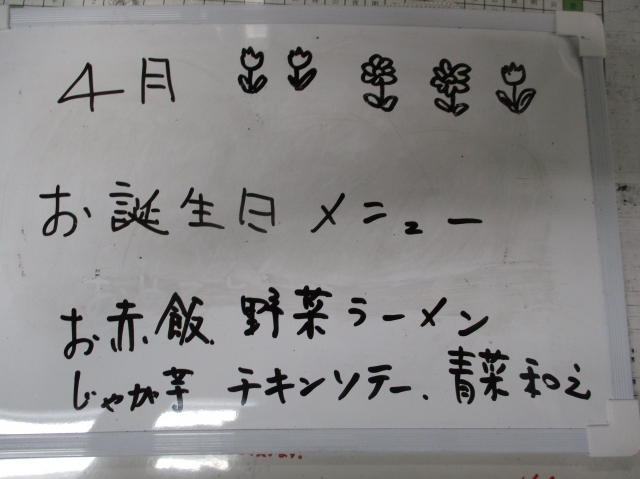 4月
お誕生日 メニュー
お赤飯、野菜ラーメン
じゃが芋 チキンソテー、青菜和え